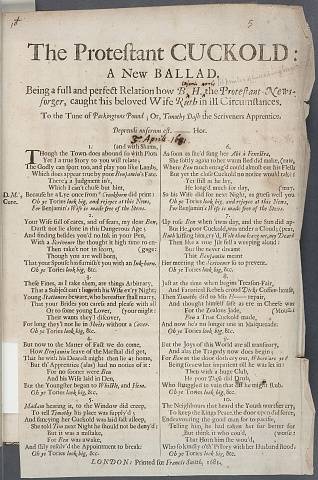 5
The Protestant CUCKOLD:
A New BALLAD.
Being a full and perfect Relation how B. H. the Protestant-News-
forger, caught his beloved Wife Ruth in ill Circumstances.
To the Tune of Packingtons Pound; Or, Timothy Dash the Scriveners Apprentice.
Deprendi miserum est. Hor.
April
1.
Though the Town does abound so with Plots and with Shams,
Yet I a true Story to you will relate;
The Godly can sport too, and play you like Lambs,
Which does appear true by poor Benjamin's Fate.
There's a Judgment in't,
Which I can't chuse but hint,
D. M.'s, Cure.
Because he a Lye once from did print:
Oh ye Tories look big, and rejoyce at this News,
For Benjamin's Wife is made free of the Stews.
2.
Your Wife full of cares, and of fears, my dear Ben,
Durst not be alone in this Dangerous Age;
And finding besides you'd no Ink in your Pen,
With a Scrivener she thought it high time to engage;
Then take't not in scorn,
Though you are well born,
That your Spouse has furnish'd you with an Ink-horn.
Oh ye Tories look big, &c.
3.
These Fines, as I take them, are things Arbitrary,
That a Subject can't sojourn his Wife ev'ry Night;
Young Statesmen beware, who hereafter shall marry,
That your Brides you earth and plenty with all
Or to some young Lover, (your might)
Their wants they'l discover,
For long they'l not lie in Sheets without a Cover.
Oh ye Tories look big, &c.
4.
But now to the Matter of Fact we do come,
How Benjamin leave of the Marshal did get,
That he with his Deary all night then lie at home,
But th' Apprentice (alas) had no notice of it:
For no sooner were Ben
And his Wife laid in Den,
But the Youngster began to Whistle, and Hem.
Oh ye Tories look big, &c.
5.
Madam hearing it, to the Window did creep,
To tell Timothy his place was supply'd;
And fancying her Cuckold was laid fast asleep,
She told You next Night he should not be deny'd:
But it was a mistake,
For Ben was awake,
And slily resolv'd the Appointment to break:
Oh ye Tories look big, &c.
6.
As soon as she'd sung her Abi a Fenestra,
She softly again to her warm Bed did make,
Where Ben much enrag'd could almost eat his Flesh
But yet the close Cuckold no notice would take:
He lay still as he
He long'd much for day,
So his Wife did for next Night, as guess well you
Oh ye Tories look big, and rejoyce at the News,
For Benjamin's Wife is made free of the Stews.
7.
Up rose Ben when 'twas day, and the Sun did ap-
But He, poor Cuckold, was under a Cloud; (pear,
Ruth kissing him, cry'd, Wilt thou leave me, my Dear?
Then like a true Jilt fell a weeping aloud:
But she never dreamt
That Benjamin meant
Her meeting the Scrivener so to prevent.
Oh ye Tories look big, &c.
8.
Just at the time when begins Treason-Fair,
And Fanatick Rebels crowd Dicks Coffee-house,
Then Timothy did to his H repair,
And thought himself safe as one in Cheese was
For the Zealous Jade,
For a True Cuckold made,
And now he's no longer one in Masquerade:
Oh ye Tories look big, &c.
9.
But the Joys of this World are all transitory,
And alas the Tragedy now does begin;
For Ben at the door doth cry out,
Being somewhat impatient till he was let in:
Then with a huge Club,
He poor Dash did Drub,
Who struggled in vain the
Oh ye Tories look big, &c.
10.
The Neighbours that heard the Youth murther cry,
To keep the Kings Peace, the door open'd of force;
Endeavouring the good man for to pacifie,
Telling him, he had taken her for better for
But th'oth'r who cou'd, (worse:
That Horn him she wou'd,
Who so kindly oth' Pillory with her Husband stood?
Oh ye Tories look big, &c.
LONDON: Printed for Francis Smith, 1681.